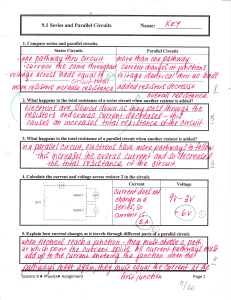 9.1 Series and Parallel Circuits
Name: KEY
1. Compare series and parallel circuits.
Series Circuits
Parallel Circuits
one pathway thru circuit
more than one pathway
current the same throughout
current changes at junctions
voltage across loads equal to
voltage identical thru as loads
more resistors increase resistance
added resistors decrease
overall resistance.
2. What happens to the total resistance of a series circuit when another resistor is added?
electrons are slowed down as they pass through the
resistors and overall current decreases - this
causes an increases total resistance of the circuit
3. What happens to the total resistance of a parallel circuit when another resistor is added?
in a parallel circuit, electrons have more pathways to follow
this increases the overall current and so decreases
the total resistance of the circuit.
4. Calculate the current and voltage across resistor 2 in the circuit.
Current
Voltage
current does not
change in a
series, so
current is
2A
9V - 3V
6V
5. Explain how current changes as it travels through different parts of a parallel circuit.
when electrons reach a junction - they must choose a path
at which point the current splits. All current pathways must
add up to the current entering the junction. When the
pathways meet again, they must equal the current of the
first junction
Science 9 Physics Assignment
Page 1
/20